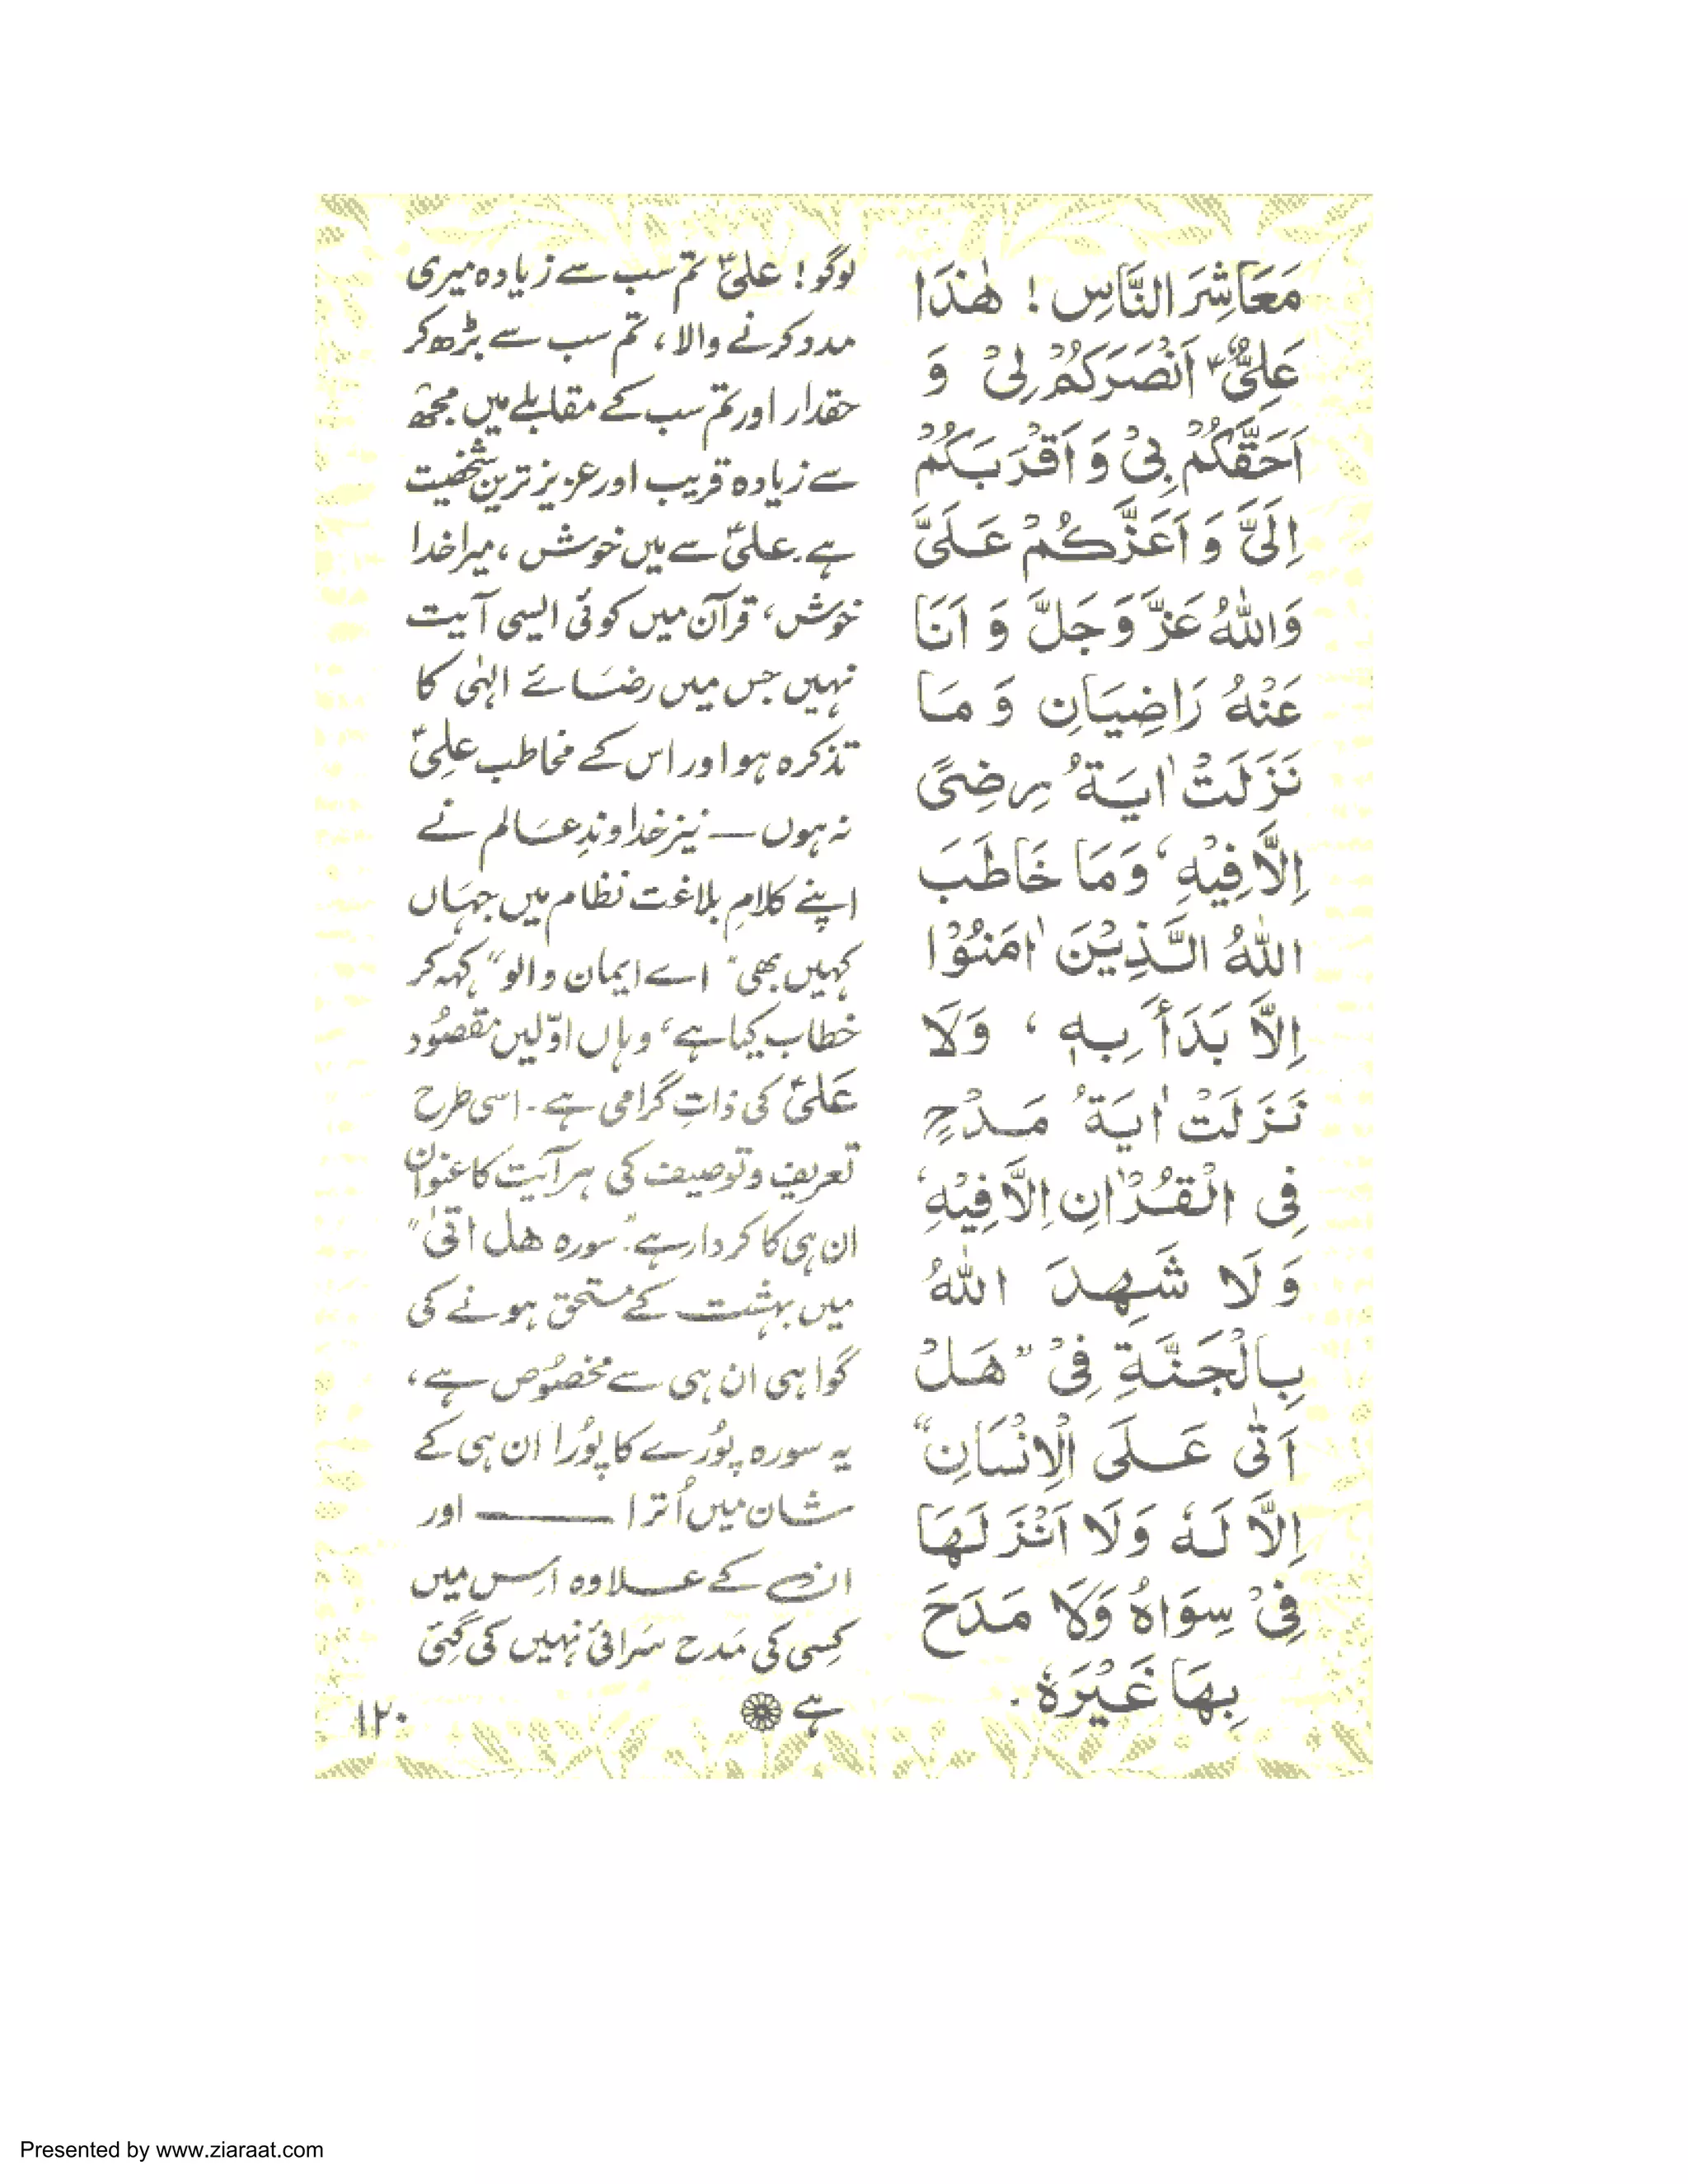 مَعَاشِرَ النَّاسِ! هٰذَا
عَلِیٌّؑ اَنْصَرَکُمْ لِیْ وَ
اَحَقَّکُمْ بِیْ وَ اَقْرَبَکُمْ
اِلَیَّ وَ اَعَزَّکُمْ عَلَیَّ
وَاللّٰهُ عَزَّ وَجَلَّ وَ اَنَا
عَنْهُ رَاضِیَانِ وَ مَا
نَزَلَتْ اٰیَةُ رِضِیً
اِلَّا فِیْهِ، وَمَا خَاطَبَ
اللّٰهُ الَّذِیْنَ اٰمَنُوْا
اِلَّا بَدَأَ بِهٖ، وَلَا
نَزَلَتْ اٰیَةُ مَدْحٍ
فِی الْقُرْاٰنِ اِلَّا فِیْهِ،
وَ لَا شَهِدَ اللّٰهُ
بِالْجَنَّةِ فِیْ "هَلْ
اَتٰی عَلَی الْاِنْسَانِ"
اِلَّا لَهٗ وَلَا اَنْزَلَهَا
فِیْ سِوَاهُ وَلَا مَدَحَ
بِهَا غَیْرَهٗ.
لوگو! علیؑ تم سب سے زیادہ میری
مدد کرنے والا، تم سب سے بڑھ کر
حقدار اور تم سب کے مقابلے میں مجھ
سے زیادہ قریب اور عزیز ترین شخصیت
ہے۔ علیؑ سے میں خوش، میرا خدا
خوش، قرآن میں کوئی ایسی آیت
نہیں جس میں رضائے الٰہی کا
تذکرہ ہو اور اس کے مخاطب علیؑ
نہ ہوں — نیز خداوندِ عالم نے
اپنے کلامِ بلاغت نظام میں جہاں
کہیں بھی "اے ایمان والو" کہہ کر
خطاب کیا ہے، وہاں اوّلیں مقصُود
علیؑ کی ذاتِ گرامی ہے۔ اسی طرح
تعریف و توصیف کی ہر آیت کا عنوان
ان ہی کا کردار ہے۔ "سورہ ھل اتیٰ"
میں بہشت کے مستحق ہونے کی
گواہی ان ہی سے مخصُوص ہے،
یہ سورہ پُورے کا پُورا ان ہی کے
شان میں اُترا — اور
ان کے علاوہ اس میں
کسی کی مَدح سَرائی نہیں کی گئی
ہے
۱۲۰
Presented by www.ziaraat.com